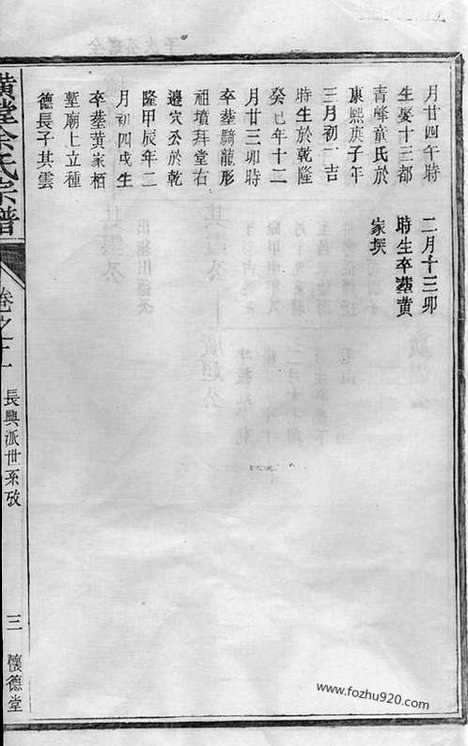 月廿四午時
生娶十三都
青峰童氏於
康熙庚子年
三月初一吉
時生於乾隆
癸巳年十二
月廿三卯時
卒塟騎龍形
祖墳拜堂右
邉穴公於乾
隆甲辰年二
月初四戌生
卒塟黄家栢
蓳廟上立種
德長子其雲
二月十三卯
時生卒塟黄
家㘰
黄堂余氏宗譜
卷之二
長興派世系攷
三
懷德堂
www.fozhu920.com